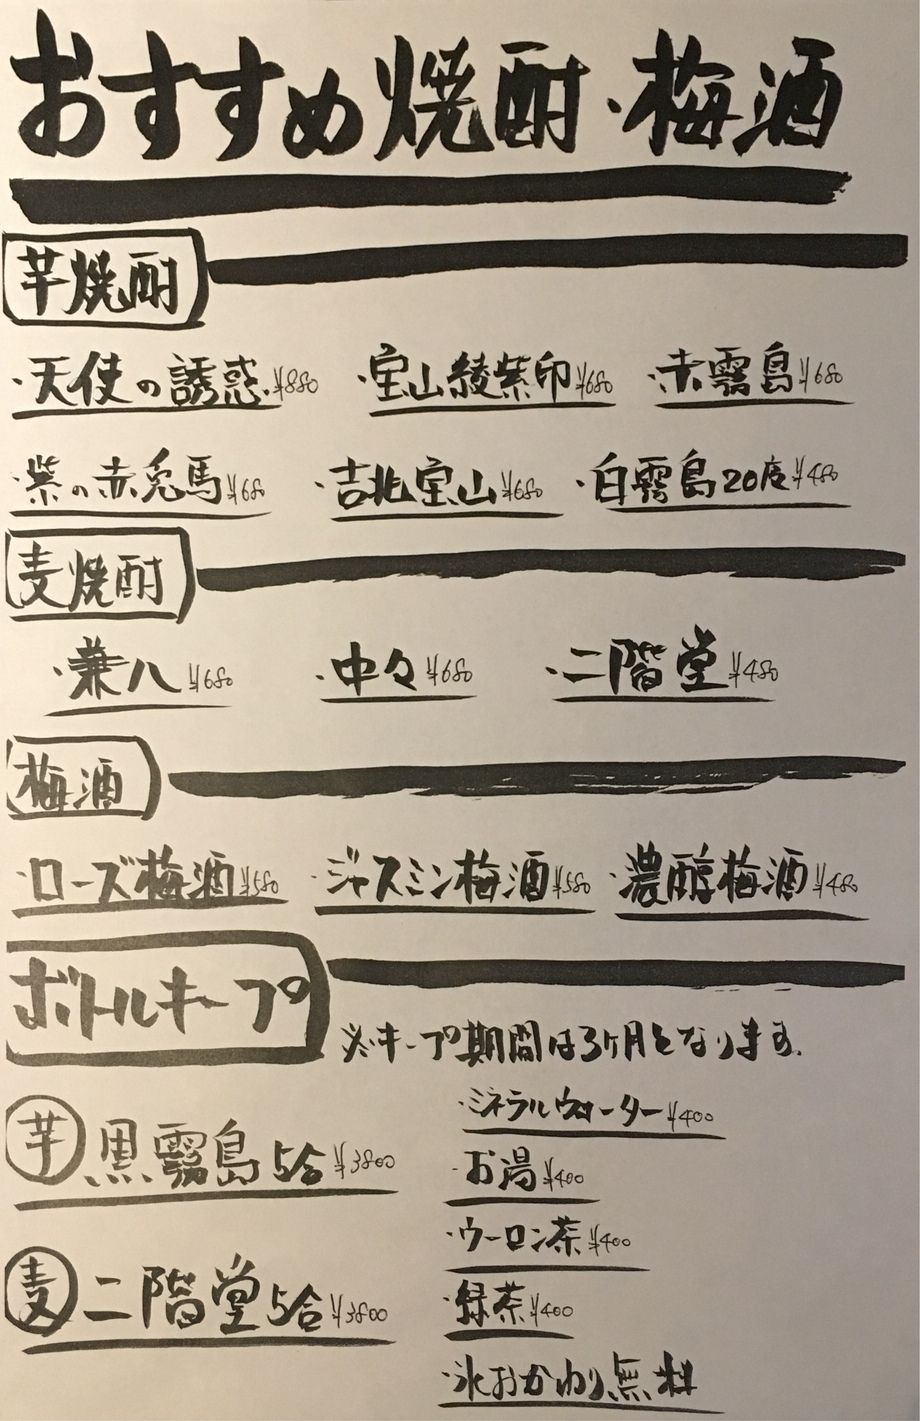 おすすめ焼酎・梅酒
芋焼酎
・天使の誘惑¥880 ・宝山綾紫印¥680 ・赤霧島¥680
・紫の赤兎馬¥680 ・吉兆宝山¥680 ・白霧島20度¥480
麦焼酎
・兼八¥680 ・中々¥680 ・二階堂¥480
梅酒
・ローズ梅酒¥580 ・ジャスミン梅酒¥580 ・濃醇梅酒¥480
ボトルキープ
※キープ期間は3ヶ月となります。
芋 黒霧島5合¥3800
麦 二階堂5合¥3800
・ミネラルウォーター¥400
・お湯¥400
・ウーロン茶¥400
・緑茶¥400
・氷おかわり無料